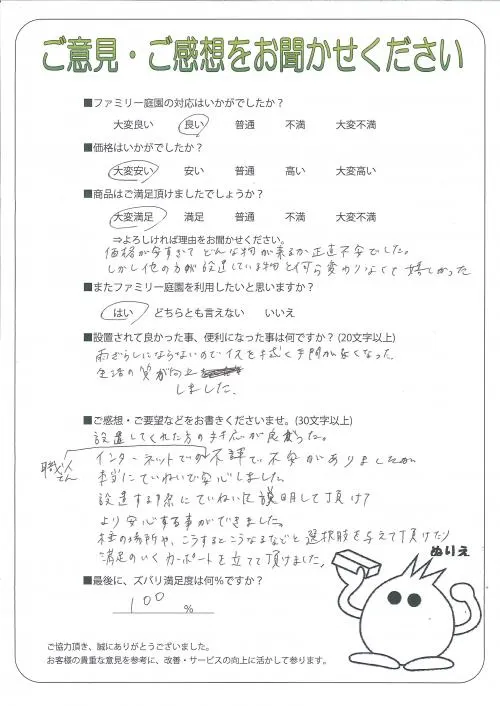 ご意見・ご感想をお聞かせください
■ファミリー庭園の対応はいかがでしたか？
大変良い 良い 普通 不満 大変不満
■価格はいかがでしたか？
大変安い 安い 普通 高い 大変高い
■商品はご満足頂けましたでしょうか？
大変満足 満足 普通 不満 大変不満
⇒よろしければ理由をお聞かせください。
価格が安すぎて どんな物が来るか正直不安でした。
しかし他の方が設置している物と何ら変わりなくて嬉しかった
■またファミリー庭園を利用したいと思いますか？
はい どちらとも言えない いいえ
■設置されて良かった事、便利になった事は何ですか？(20文字以上)
雨ざらしにならないのでイスを拭く手間が無くなった。
生活の質が向上
しました。
■ご感想・ご要望などをお書きくださいませ。(30文字以上)
設置してくれた方の対応が良かった。
職人さん
インターネットでの不評で不安がありましたが
本当にていねいで安心しました。
設置する際にていねいに説明して頂け
より安心する事ができました。
柱の場所や、こうするとこうなるなどと選択肢を与えて頂けたり
満足のいくカーポートを立てて頂けました。
ぬりえ
■最後に、ズバリ満足度は何％ですか？
100 %
ご協力頂き、誠にありがとうございました。
お客様の貴重な意見を参考に、改善・サービスの向上に活かして参ります。